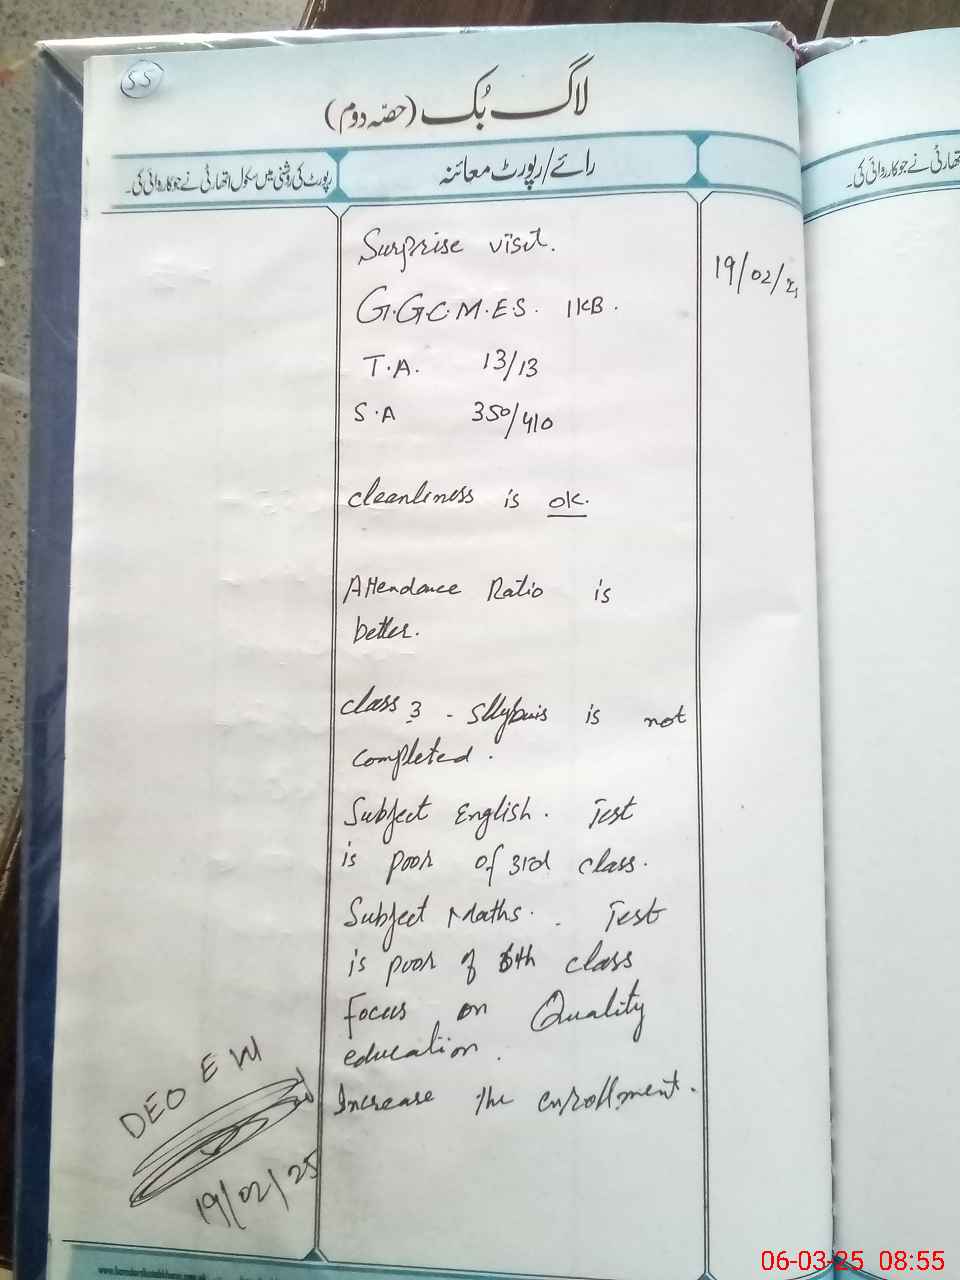 55
لاگ بُک (حصّہ دوم)
رائے/رپورٹ معائنہ
پورٹ کی روشنی میں سکول اتھارٹی نے جو کاروائی کی۔
تھارٹی نے جو کاروائی کی۔
19/02/25
Surprise visit.
G.G.C.M.E.S. 1KB.
T.A. 13/13
S.A 350/410
cleanliness is ok.
Attendance Ratio is
better.
class 3 - Sllybuis is not
completed.
Subject English. Test
is poor of 3rd class.
Subject Maths. Test
is poor of 5th class
Focus on Quality
education.
Increase the enrollment.
DEO E W
19/02/25
06-03-25 08:55